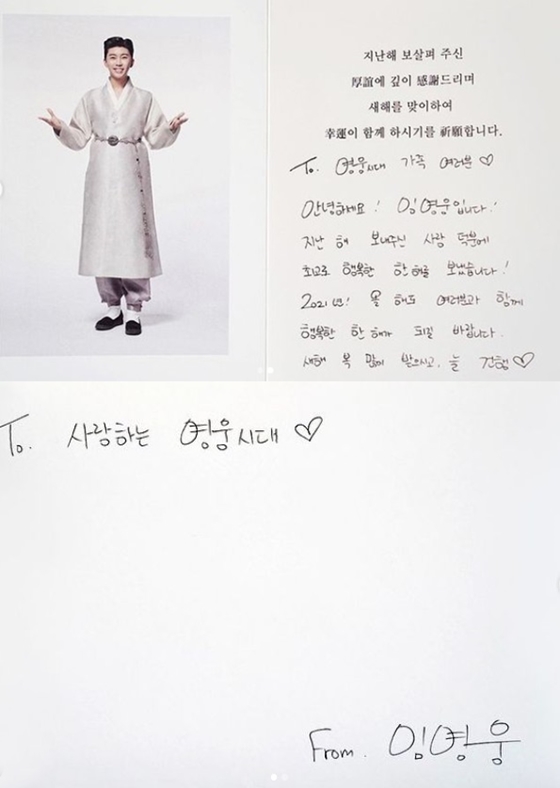 지난해 보살펴 주신
厚誼에 깊이 感謝드리며
새해를 맞이하여
幸運이 함께 하시기를 祈願합니다.
To. 영웅시대 가족 여러분 ♡
안녕하세요! 임영웅입니다!
지난 해 보내주신 사랑 덕분에
최고로 행복한 한 해를 보냈습니다!
2021년! 올 해도 여러분과 함께
행복한 한 해가 되길 바랍니다.
새해 복 많이 받으시고, 늘 건행♡
To. 사랑하는 영웅시대 ♡
From. 임영웅